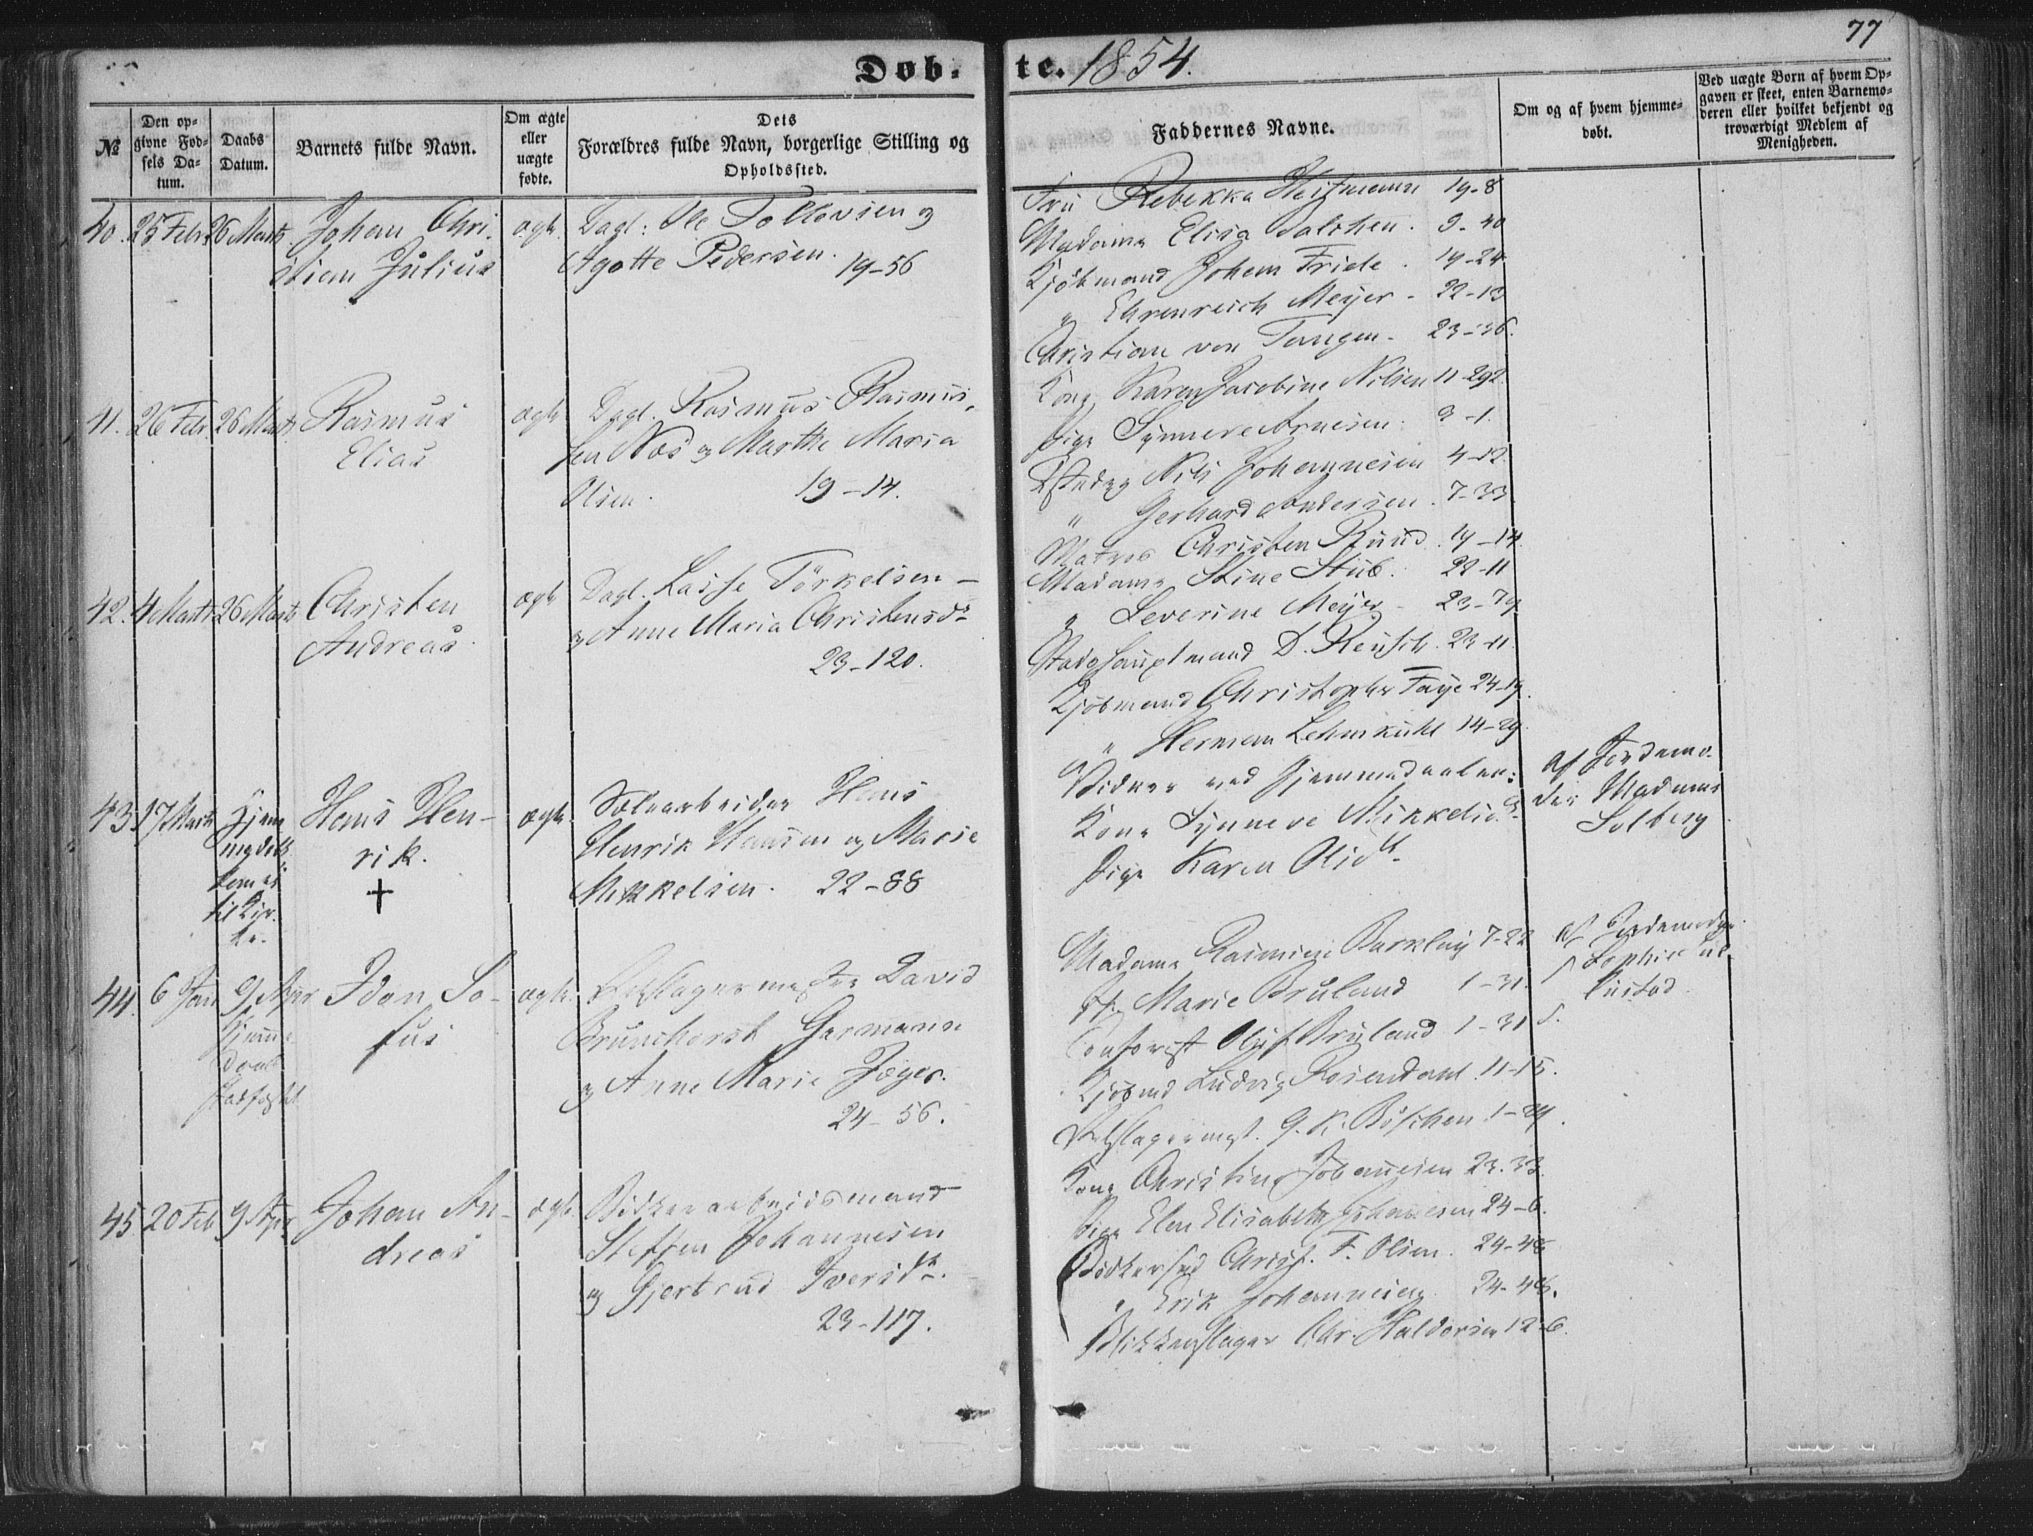 77
Døb- te. 1854.
№
Den op-
givne Fød-
sels Da-
tum.
Daabs
Datum.
Barnets fulde Navn.
Om ægte
eller
uægte
fødte.
Dets
Forældres fulde Navn, borgerlige Stilling og
Opholdssted.
Faddernes Navne.
Om og af hvem hjemme-
døbt.
Ved uægte Børn af hvem Op-
gaven er skeet, enten Barnemo-
deren eller hvilket bekjendt og
troværdigt Medlem af
Menigheden.
40. 25 Febr 26 Marts Johan Chri-
stian Julius
ægte
Dagl: Ole Tollevsen og
Agatte Pedersen. 19-56
Fru Rebekka 19-8
Madame Elisa 9-40
Kjøbmand Johan Friele. 14-24
" Ehrenreich Meyer - 22-13
Christian von Tangen - 23-36.
41. 26 Febr. 26 Marts Rasmus
Elias
ægte
Dagl. Rasmus Rasmus-
sen Næs og Marthe Maria
Olsen. 19-14.
Kone Karen Jacobine Nilsen 11-292
Pige Synneve Arnesen. 3-1.
Nils Johannesen 4-12
" Gerhard Andersen. 7-33
Matros Christen Ruud. 14-14
42. 4 Marts 26 Marts Christen
Andreas
ægte
Dagl. Lasse Törkelsen -
og Anne Maria Christensdr
23-120.
Madame Stine Stub. 22-11
" Severine Meyer - 23-79
Stadshauptmand D. Reusch. 23-11.
Kjøbmand Christopher Faye 24-19.
" Herman Lehmkuhl 14-29.
43. 17 Marts Hjem-
medøbt
kom ei
til Kir-
ke.
Hans Hen-
rik.
†
ægte
Sølvarbeider Hans
Henrik Hansen og Marie
Mikkelsen. 22-88
Vidner ved Hjemmedaaben:
Kone Synneve Mikkelsdr
Pige Karen Olsdtr
af Jordemo-
der Madame
Solberg
44. 6 Jan 9 Apr
Hjemme-
daab
Idan So-
fus
ægte
David
Brunchorst Germann
og Anne Marie Jæger.
24-56.
Madame Rasmine Barkley 7-22
Marie Bruland 1-31.
Oluf Bruland 1-31
Kjøbmd Ludvig Rosendahl. 11-15.
G. K. 1-29.
af Jordemoder
Sophie
45. 20 Feb 9 Apr. Johan An-
dreas
ægte
Bødkerarbeidsmand
Steffen Johannesen
og Gjertrud Iversdtr.
23-117.
Kone Christine Johannesen 23.33
Pige Elen Elisabeth Johannesen 24-6.
Bødkersvd Christ. F. Olsen. 24-48
" Erik Johannesen 24-48.
Blikkenslager Chr. Haldorsen 12-6.